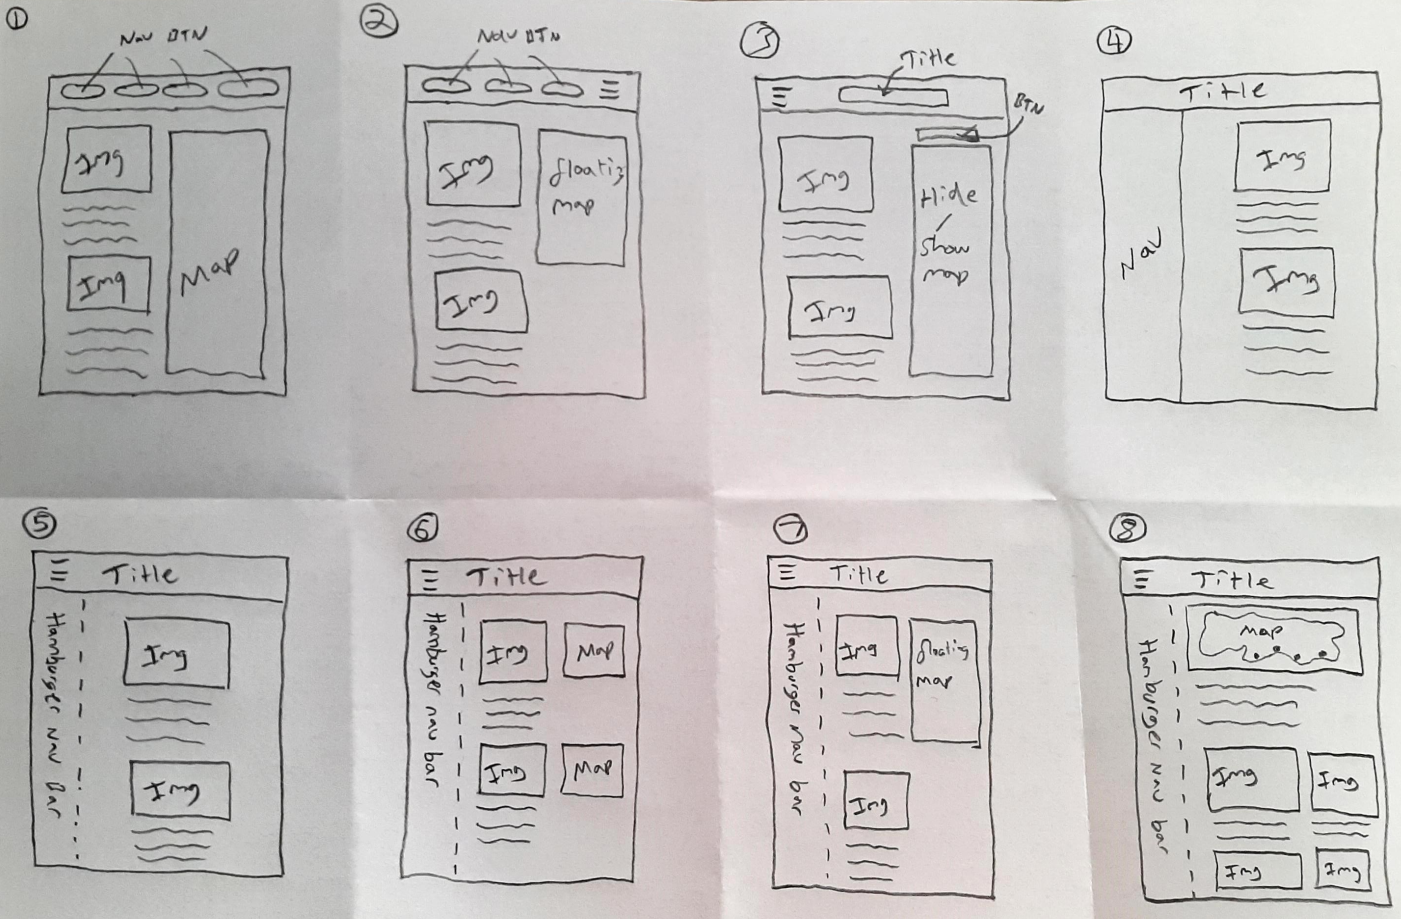 1
Nav BTN
Img
Img
Map
2
Nav BTN
Img
floating
map
Img
3
Title
BTN
Img
Hide
/
Show
map
Img
4
Title
Nav
Img
Img
5
Title
Hamburger Nav Bar
Img
Img
6
Title
Hamburger nav bar
Img
Map
Img
Map
7
Title
Hamburger nav bar
Img
floating
map
Img
8
Title
Hamburger nav bar
Map
Img
Img
Img
Img